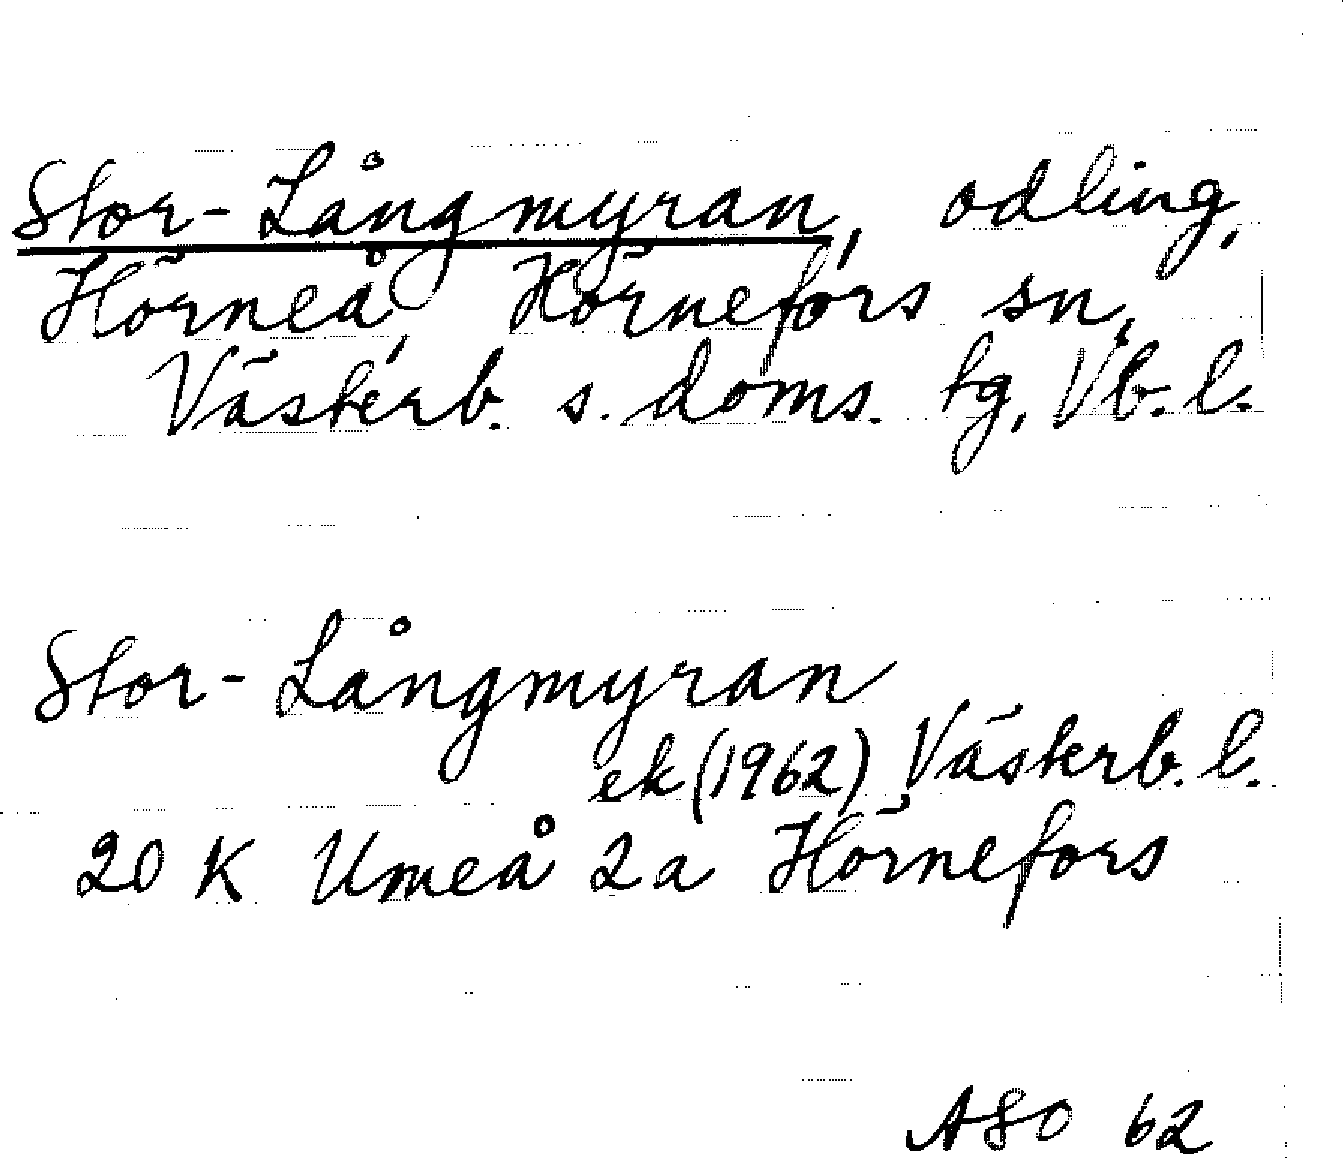 Stor-Långmyran, odling,
Hörneå, Hörnefors sn,
Västerb. s. doms. tg, Vb. l.
Stor-Långmyran
ek (1962) Västerb. l.
20 K Umeå 2 a Hörnefors
ASO 62